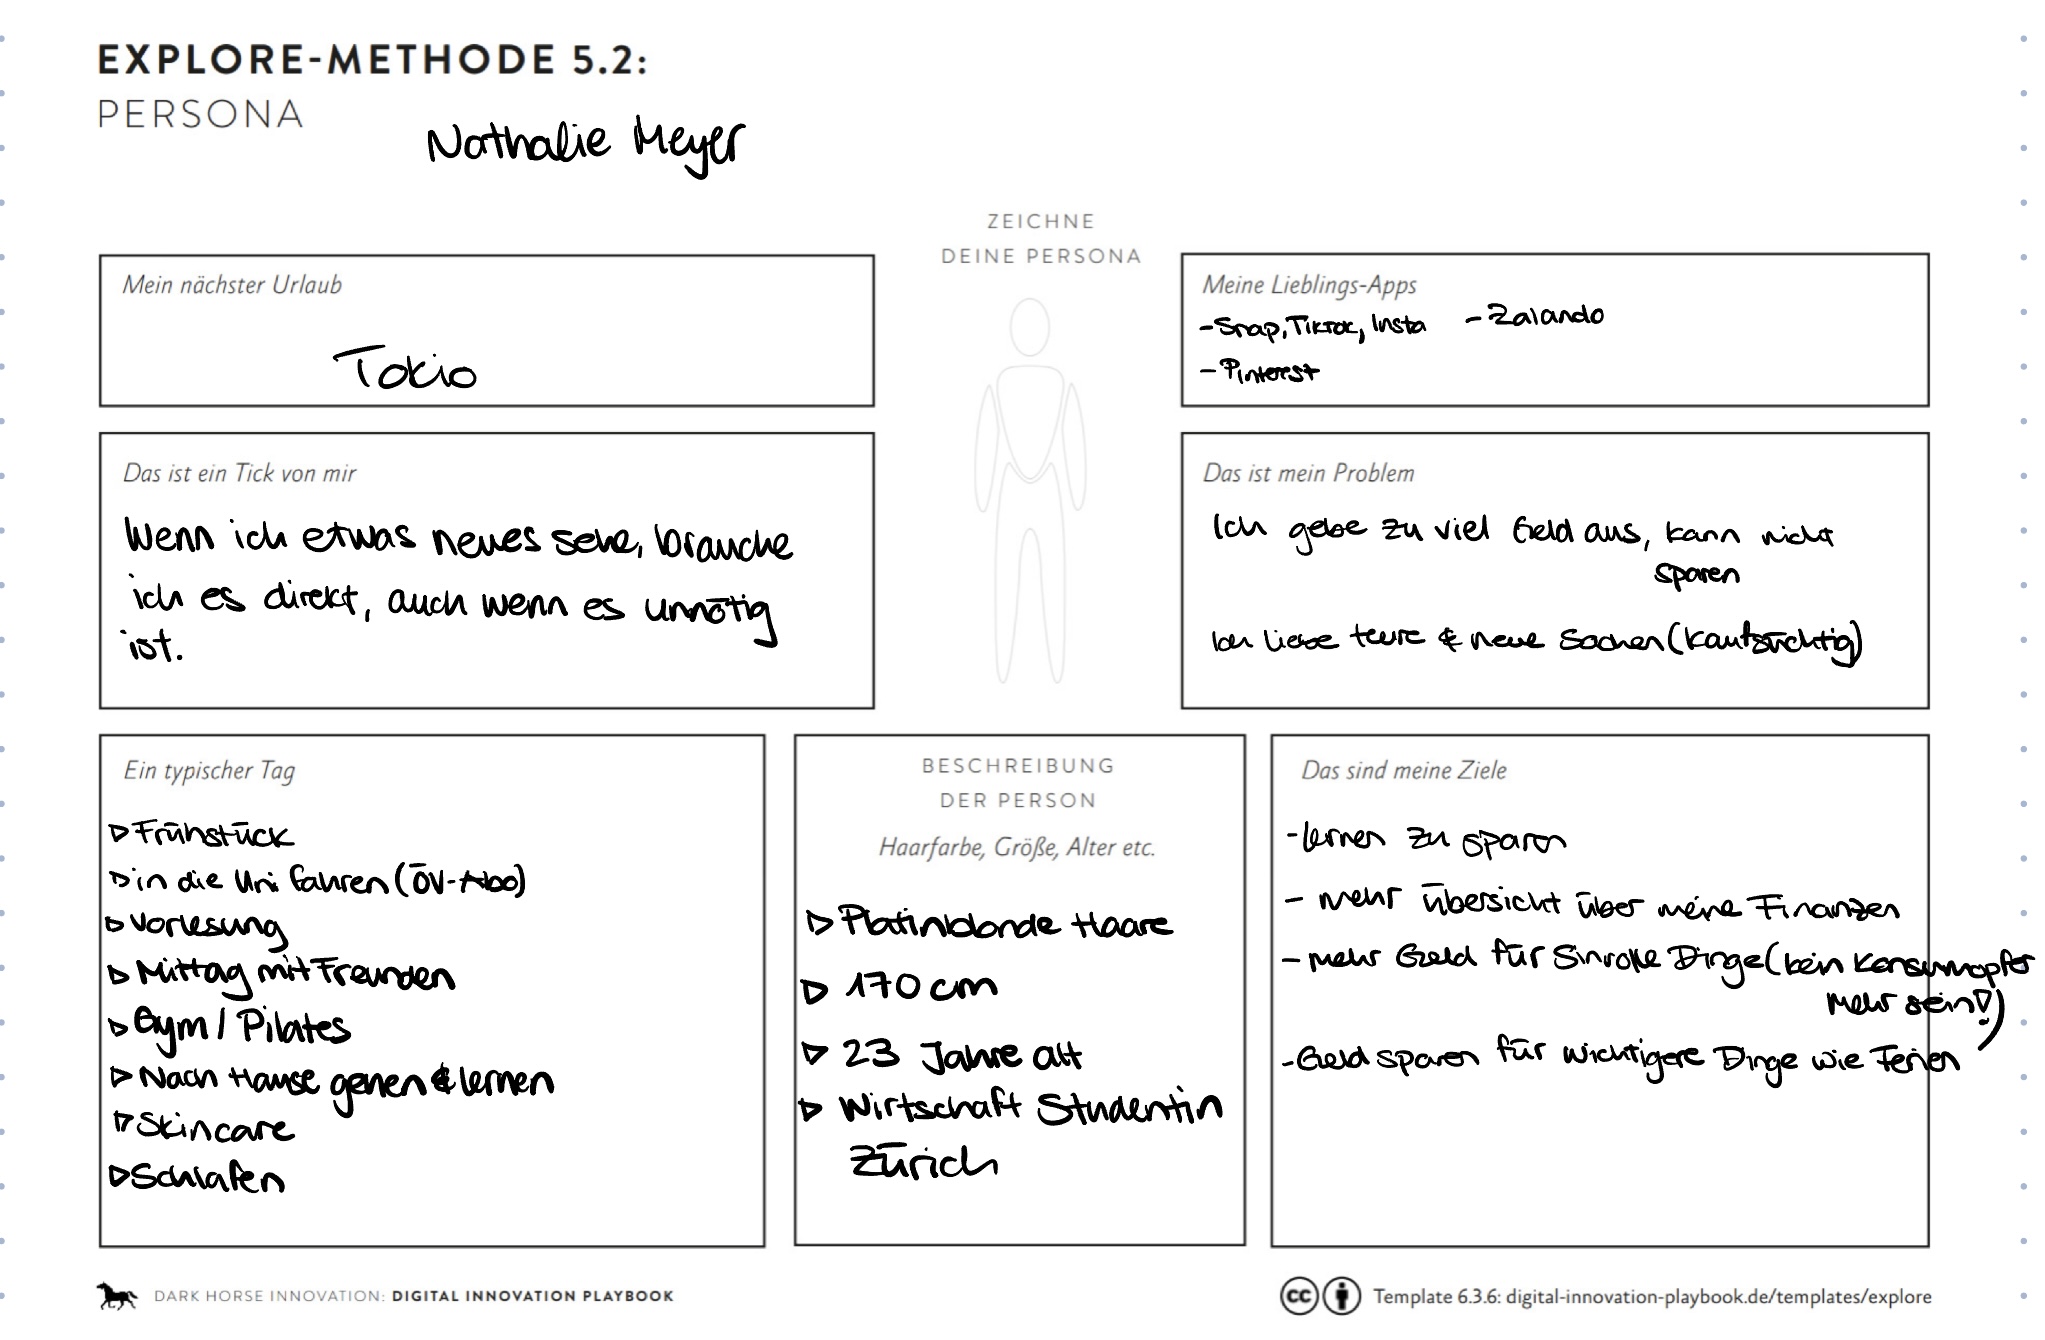 EXPLORE-METHODE 5.2:
PERSONA
Nathalie Meyer
ZEICHNE
DEINE PERSONA
Mein nächster Urlaub
Tokio
Meine Lieblings-Apps
-Snap, Tiktok, Insta - Zalando
- Pinterest
Das ist ein Tick von mir
Wenn ich etwas neues sehe, brauche
ich es direkt, auch wenn es unnötig
ist.
Das ist mein Problem
Ich gebe zu viel Geld aus, kann nicht
sparen
Ich liebe teure & neue Sachen (kaufsüchtig)
Ein typischer Tag
▷ Frühstück
▷ in die Uni fahren (ÖV-Abo)
▷ Vorlesung
▷ Mittag mit Freunden
▷ Gym / Pilates
▷ Nach Hause gehen & lernen
▷ Skincare
▷ Schlafen
BESCHREIBUNG
DER PERSON
Haarfarbe, Größe, Alter etc.
▷ Platinblonde Haare
▷ 170 cm
▷ 23 Jahre alt
▷ Wirtschaft Studentin
Zürich
Das sind meine Ziele
-lernen zu sparen
- mehr Übersicht über meine Finanzen
- mehr Geld für Sinvolle Dinge (kein Konsumopfer
mehr sein!)
-Geld sparen für wichtigere Dinge wie Ferien
DARK HORSE INNOVATION: DIGITAL INNOVATION PLAYBOOK
cc Template 6.3.6: digital-innovation-playbook.de/templates/explore